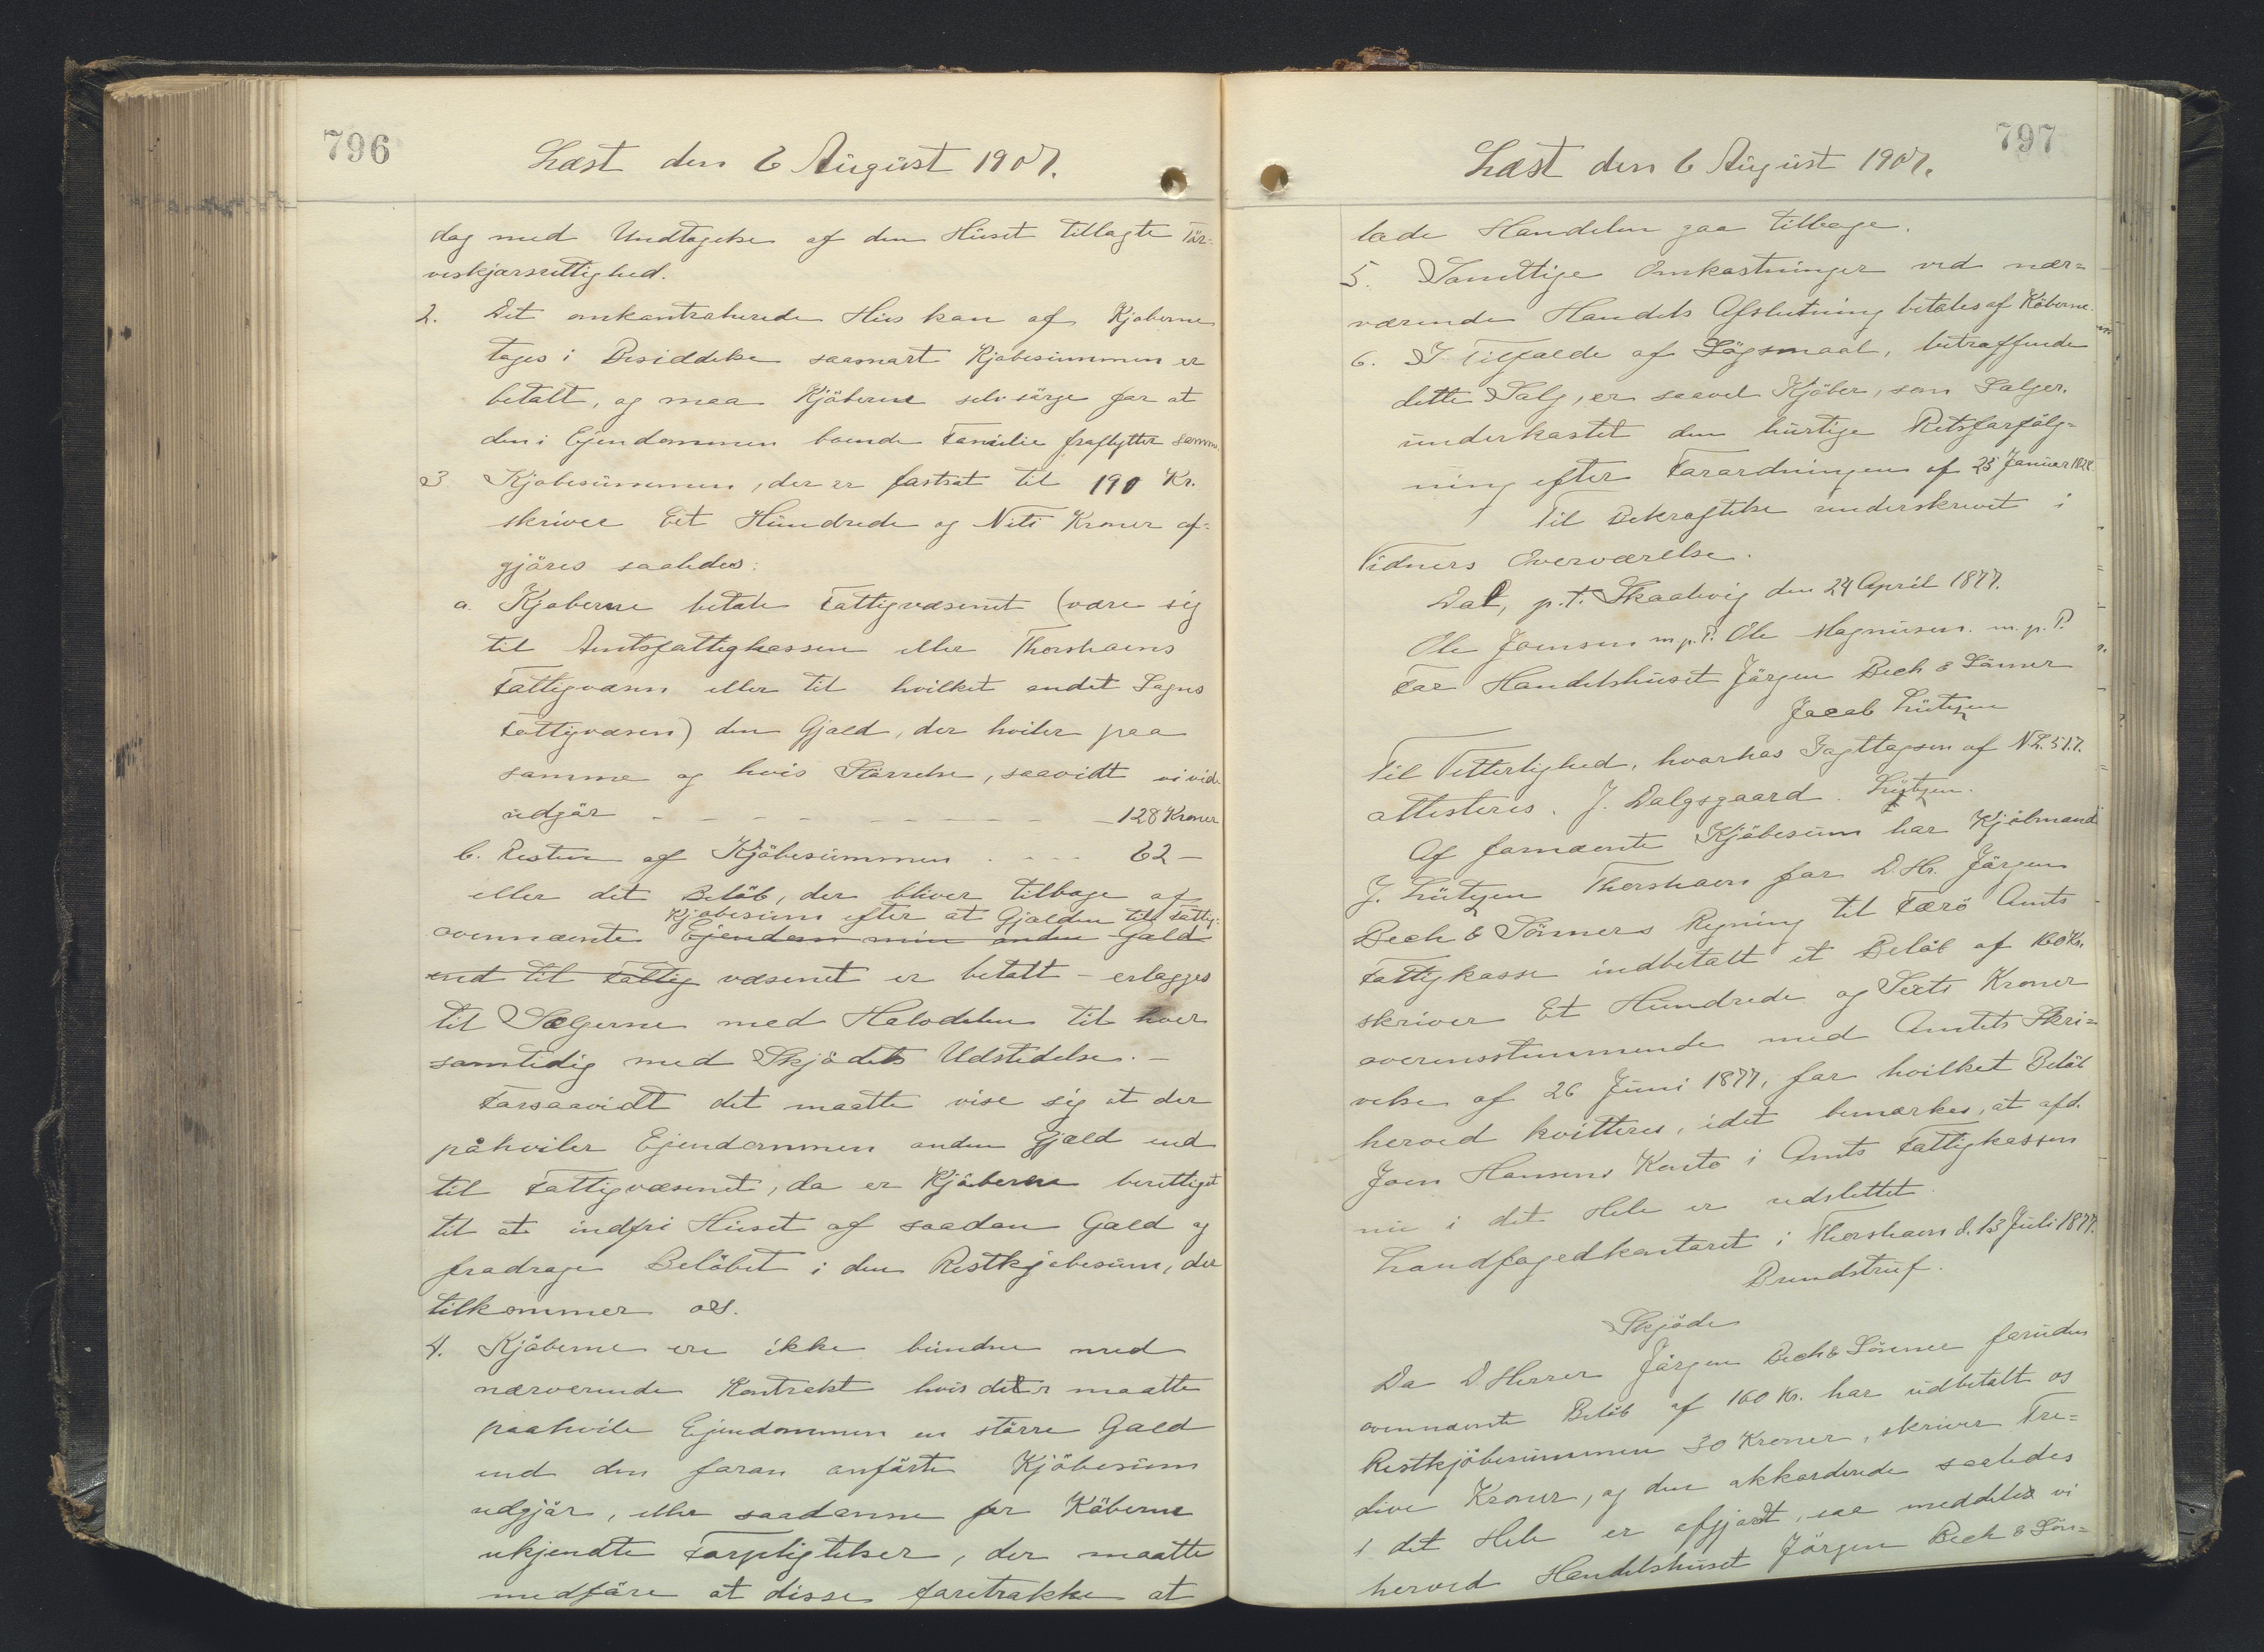 796
Læst den 6 August 1907.
dag med Undtagelse af den Huset tillagte Tör=
veskjærsrettighed.
2. Det omkontraherede Hus kan af Kjøberne
tages i Besiddelse saasnart Kjøbesummen er
betalt, og maa Kjöberne selv sörge for at
den i Ejendommen boende Familie fraflytter samme.
3 Kjøbesummen, der er fastsat til 190 Kr.
skriver Et Hundrede og Niti Kroner af=
gjöres saaledes:
a. Kjøberne betale Fattigvæsenet (være sig
til Amtsfattigkassen eller Thorshavns
Fattigvæsen eller til hvilket andet Sogns
Fattigvæsen) den Gjæld, der hviler paa
samme og hvis Störrelse, saavidt vi vide
udgjör - - - - - - - - - 128 Kroner
b. Resten af Kjöbesummen - - - 62 —
eller det Belöb, der bliver tilbage af
Kjøbesum efter at Gjælden til Fattig=
ovennævnte Ejendom min anden Gæld
end til Fattig væsenet er betalt - erlægges
til Sælgerne med Halvdelen til hver
samtidig med Skjödets Udstedelse. -
Forsaavidt det maatte vise sig at der
påhviler Ejendommen anden Gjæld end
til Fattigvæsenet, da er Kjöberne berettiget
til at indfri Huset af saadan Gæld og
fradrage Belöbet i den Restkjøbesum, der
tilkommer os.
4. Kjöberne ere ikke bundne med
nærværende Kontrakt hvis der maatte
paahvile Ejendommen en större Gæld
end den foran anförte Kjöbesum
udgjör, eller saadanne for Köberne
ukjendte Forpligtelser, der maatte
medföre at disse foretrække at
797
Læst den 6 August 1907.
lade Handelen gaa tilbage.
5. Samtlige Omkostninger ved nær=
værende Handels Afslutning betales af Köberne.
6. I Tilfælde af Sögsmaal, betræffende
dette Salg, er saavel Kjöber, som Sælger
underkastet den hurtige Retsforfölg=
ning efter Forordningen af 25 Januar 1828
Til Bekræftelse underskrevet i
Vidners Overværelse.
Dat, p.t. Skaalevig den 24 April 1877.
Ole Joensen m.p.P. Ole Magnusen. m.p.P.
For Handelshuset Jörgen Bech & Sönner
Jacob Lützen
Til Vitterlighed, hvorhos Iagttagsen af N L. 5 1.7.
attesteres. J. Dalgsgaard. Lützen.
Af fornævnte Kjöbesum har Kjöbmand
J. Lützen Thorshavn for D.Hr. Jörgen
Bech & Sönners Regning til Færö Amts
Fattigkasse indbetalt et Belöb af 160 Kr.
skriver Et Hundrede og Sexti Kroner
overensstemmende med Amtets Skri=
velse af 26 Juni 1877, for hvilket Belöb
herved kvitteres, idet bemærkes, at afd.
Joen Hansens Konto i Amts Fattigkassen
nu i det Hele er udslettet.
Landfogedkontoret i Thorshavn d. 13 Juli 1877.
Bundstruf.
Skjöde
Da D.Herrer Jörgen Bech & Sönner foruden
ovennævnte Belöb af 160 Kr. har udbetalt os
Restkjöbesummen 30 Kroner, skriver Tre=
dive Kroner, og den akkorderede saaledes
i det Hele er afgjort, saa meddeler vi
herved Handelshuset Jörgen Bech & Sön=